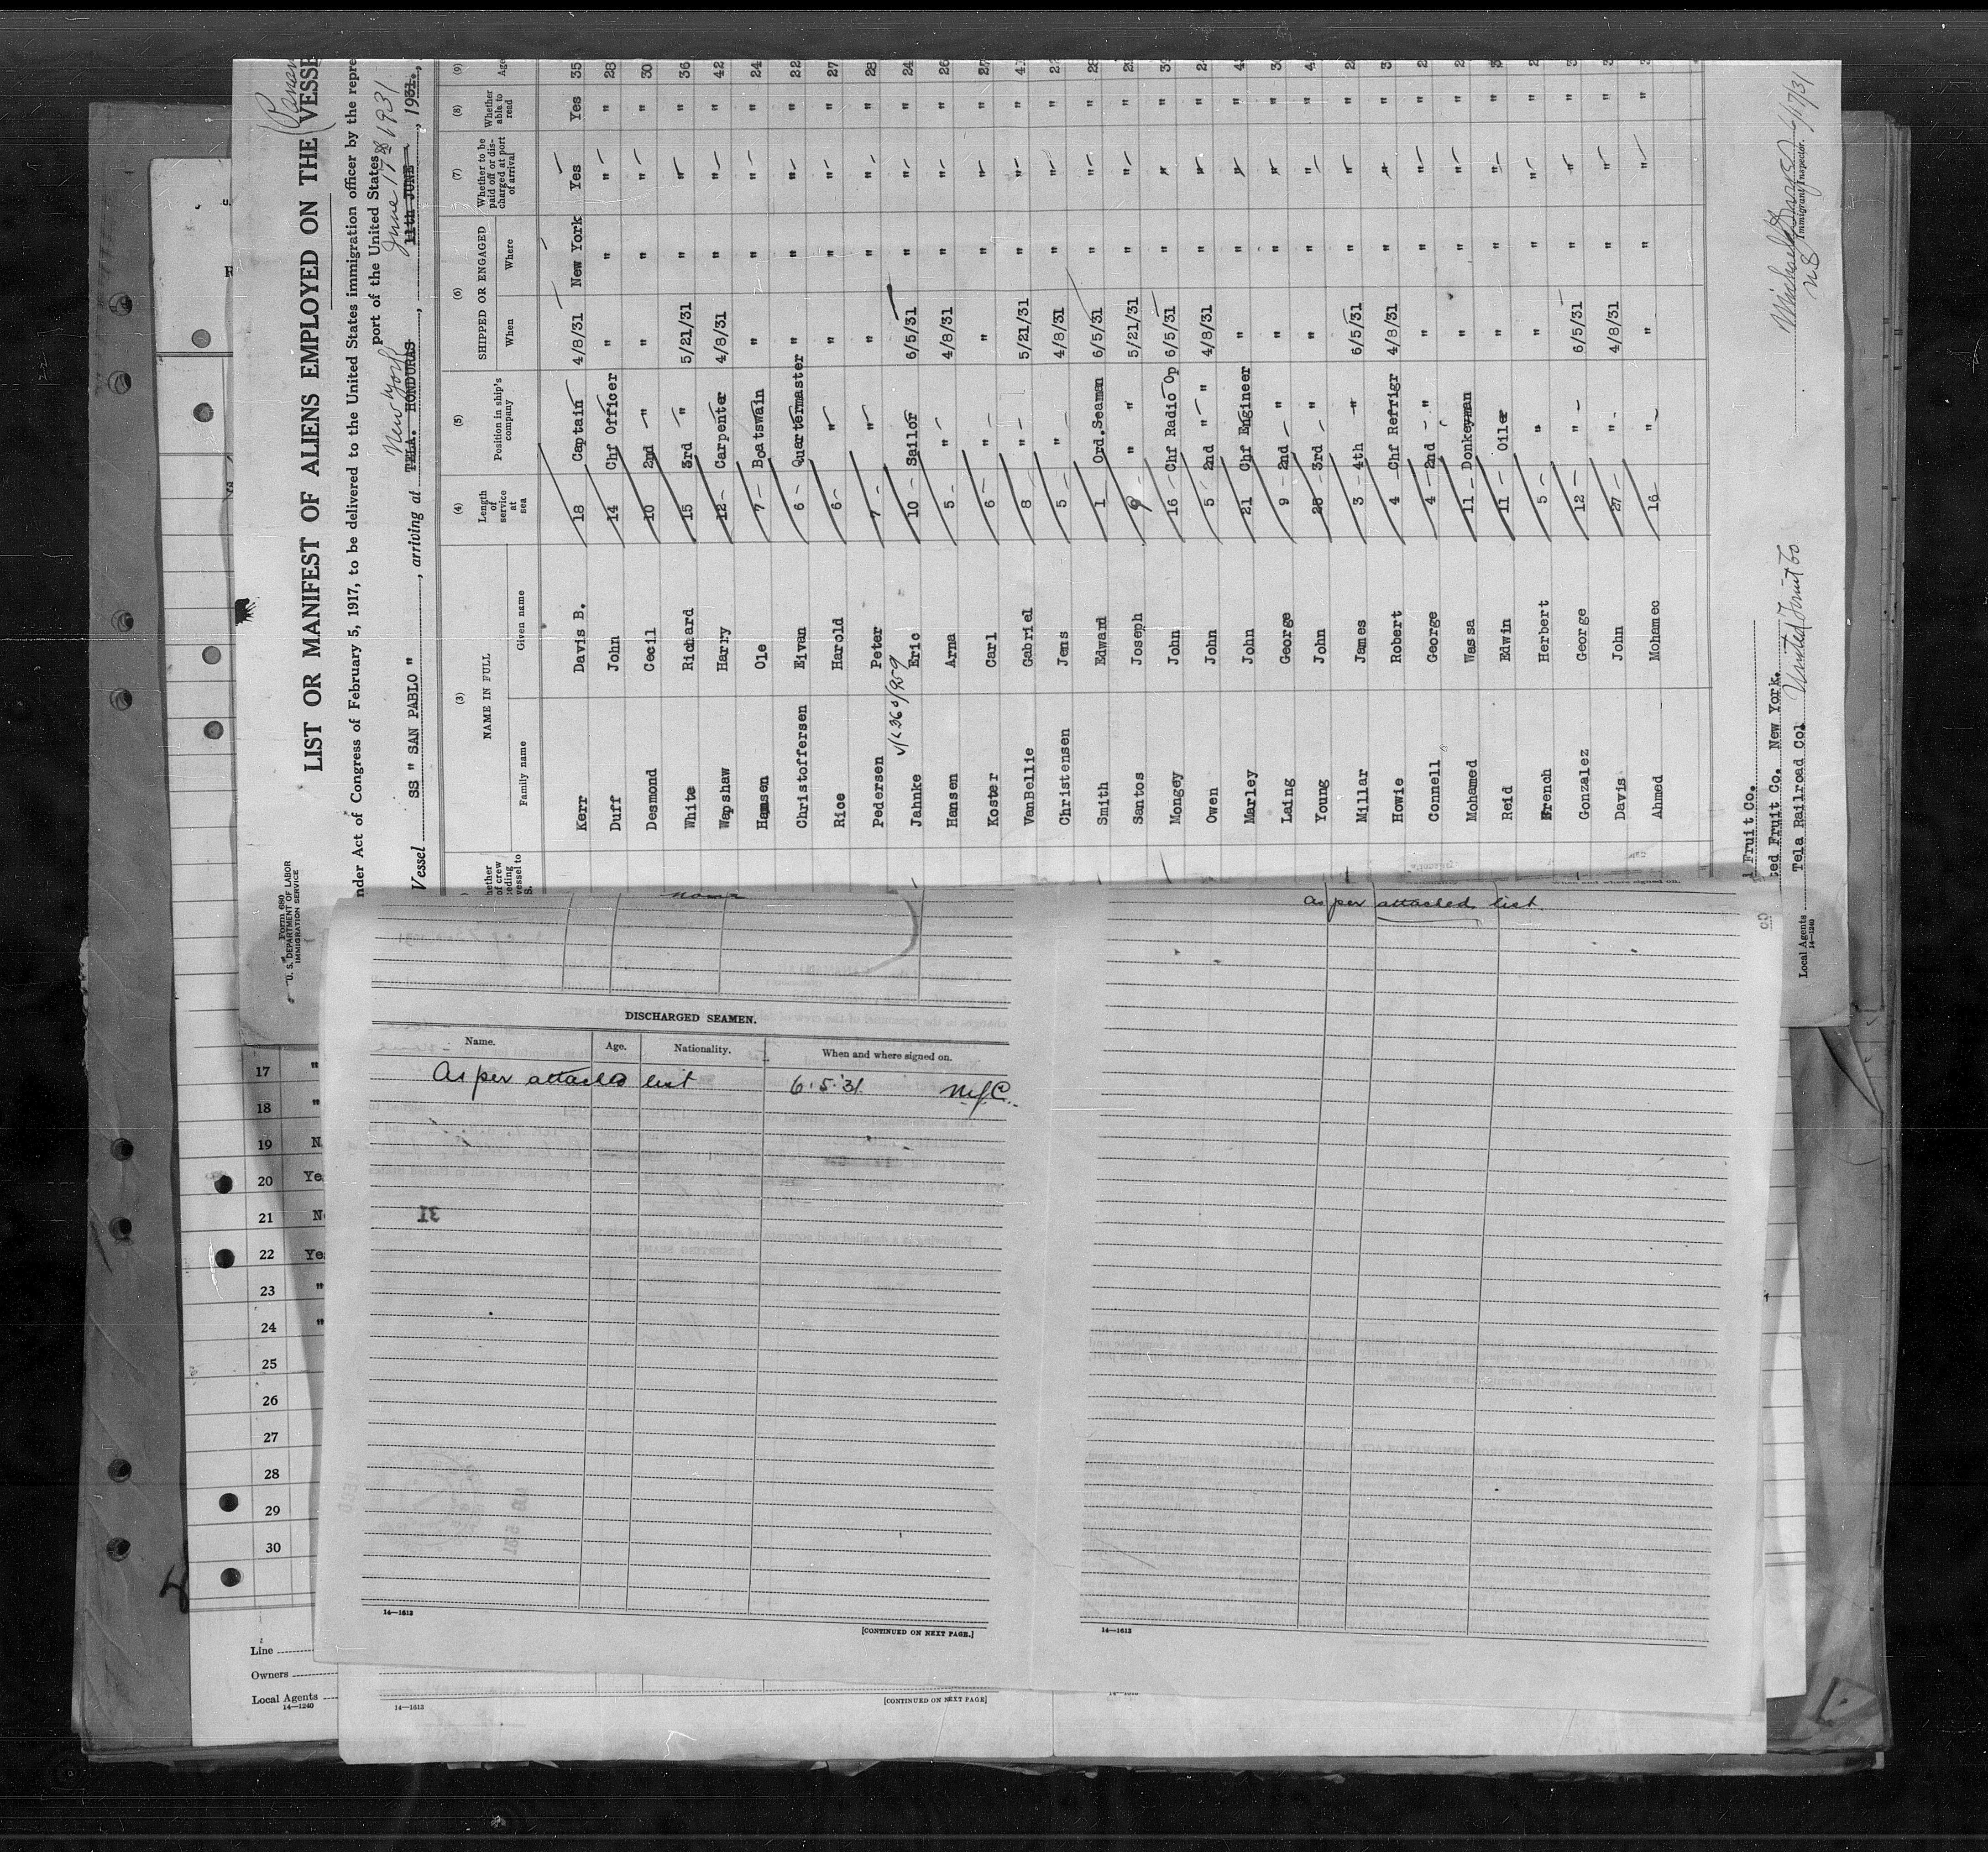 LIST OR MANIFEST OF ALIENS EMPLOYED ON THE VESSE
Form 680
U. S. DEPARTMENT OF LABOR
IMMIGRATION SERVICE
nder Act of Congress of February 5, 1917, to be delivered to the United States immigration officer by the repre
port of the United States
New York June 17th 1931
Vessel SS " SAN PABLO ", arriving at TELA. HONDURAS, 11th JUNE, 1931.,
(3) (4) (5) (6) (7) (8) (9)
NAME IN FULL
Family name Given name
Length of service at sea
Position in ship's company
SHIPPED OR ENGAGED
When Where
Whether to be paid off or discharged at port of arrival
Whether able to read
Age
Kerr Davis B. 18 Captain 4/8/31 New York Yes Yes 35
Duff John 14 Chf Officer " " " " 28
Desmond Cecil 10 2nd " " " " " 30
White Richard 15 3rd " 5/21/31 " " " 36
Wapshaw Harry 12 Carpenter 4/8/31 " " " 42
Hansen Ole 7 Boatswain " " " " 24
Christoffersen Eivan 6 Quartermaster " " " " 22
Rice Harold 6 " " " " " 27
Pedersen Peter 7 " " " " " 28
Jahnke Eric 10 Sailor 6/5/31 " " " 24
Hansen Arna 5 " 4/8/31 " " " 26
Koster Carl 6 " " " " " 27
VanBellie Gabriel 8 " 5/21/31 " " "
Christensen Jens 5 " 4/8/31 " " "
Smith Edward 1 Ord.Seaman 6/5/31 " " "
Santos Joseph 9 " " 5/21/31 " " "
Mongey John 16 Chf Radio Op 6/5/31 " " "
Owen John 5 2nd " " 4/8/31 " " "
Marley John 21 Chf Engineer " " " "
Laing George 9 2nd " " " " "
Young John 28 3rd " " " " "
Millar James 3 4th " 6/5/31 " " "
Howie Robert 4 Chf Refrigr 4/8/31 " " "
Connell George 4 2nd " " " " "
Mohamed Wassa 11 Donkeyman " " " "
Reid Edwin 11 Oiler " " " "
French Herbert 5 " " " " "
Gonzalez George 12 " 6/5/31 " " "
Davis John 27 " 4/8/31 " " "
Ahmed Mohamec 16 " " " " "
Fruit Co.
ed Fruit Co. New York.
Local Agents Tela Railroad Co. United Fruit Co
14—1240
Immigrant Inspector. 6/17/31
none
DISCHARGED SEAMEN.
Name. Age. Nationality. When and where signed on.
As per attached list 6.5.31 NYC.
14—1613
[CONTINUED ON NEXT PAGE.]
as per attached list
14—1613
17 "
18 "
19 N
20 Ye
21 N
22 Ye
23 "
24 "
25
26
27
28
29
30
Line
Owners
Local Agents
14—1240
14—1613
[CONTINUED ON NEXT PAGE]